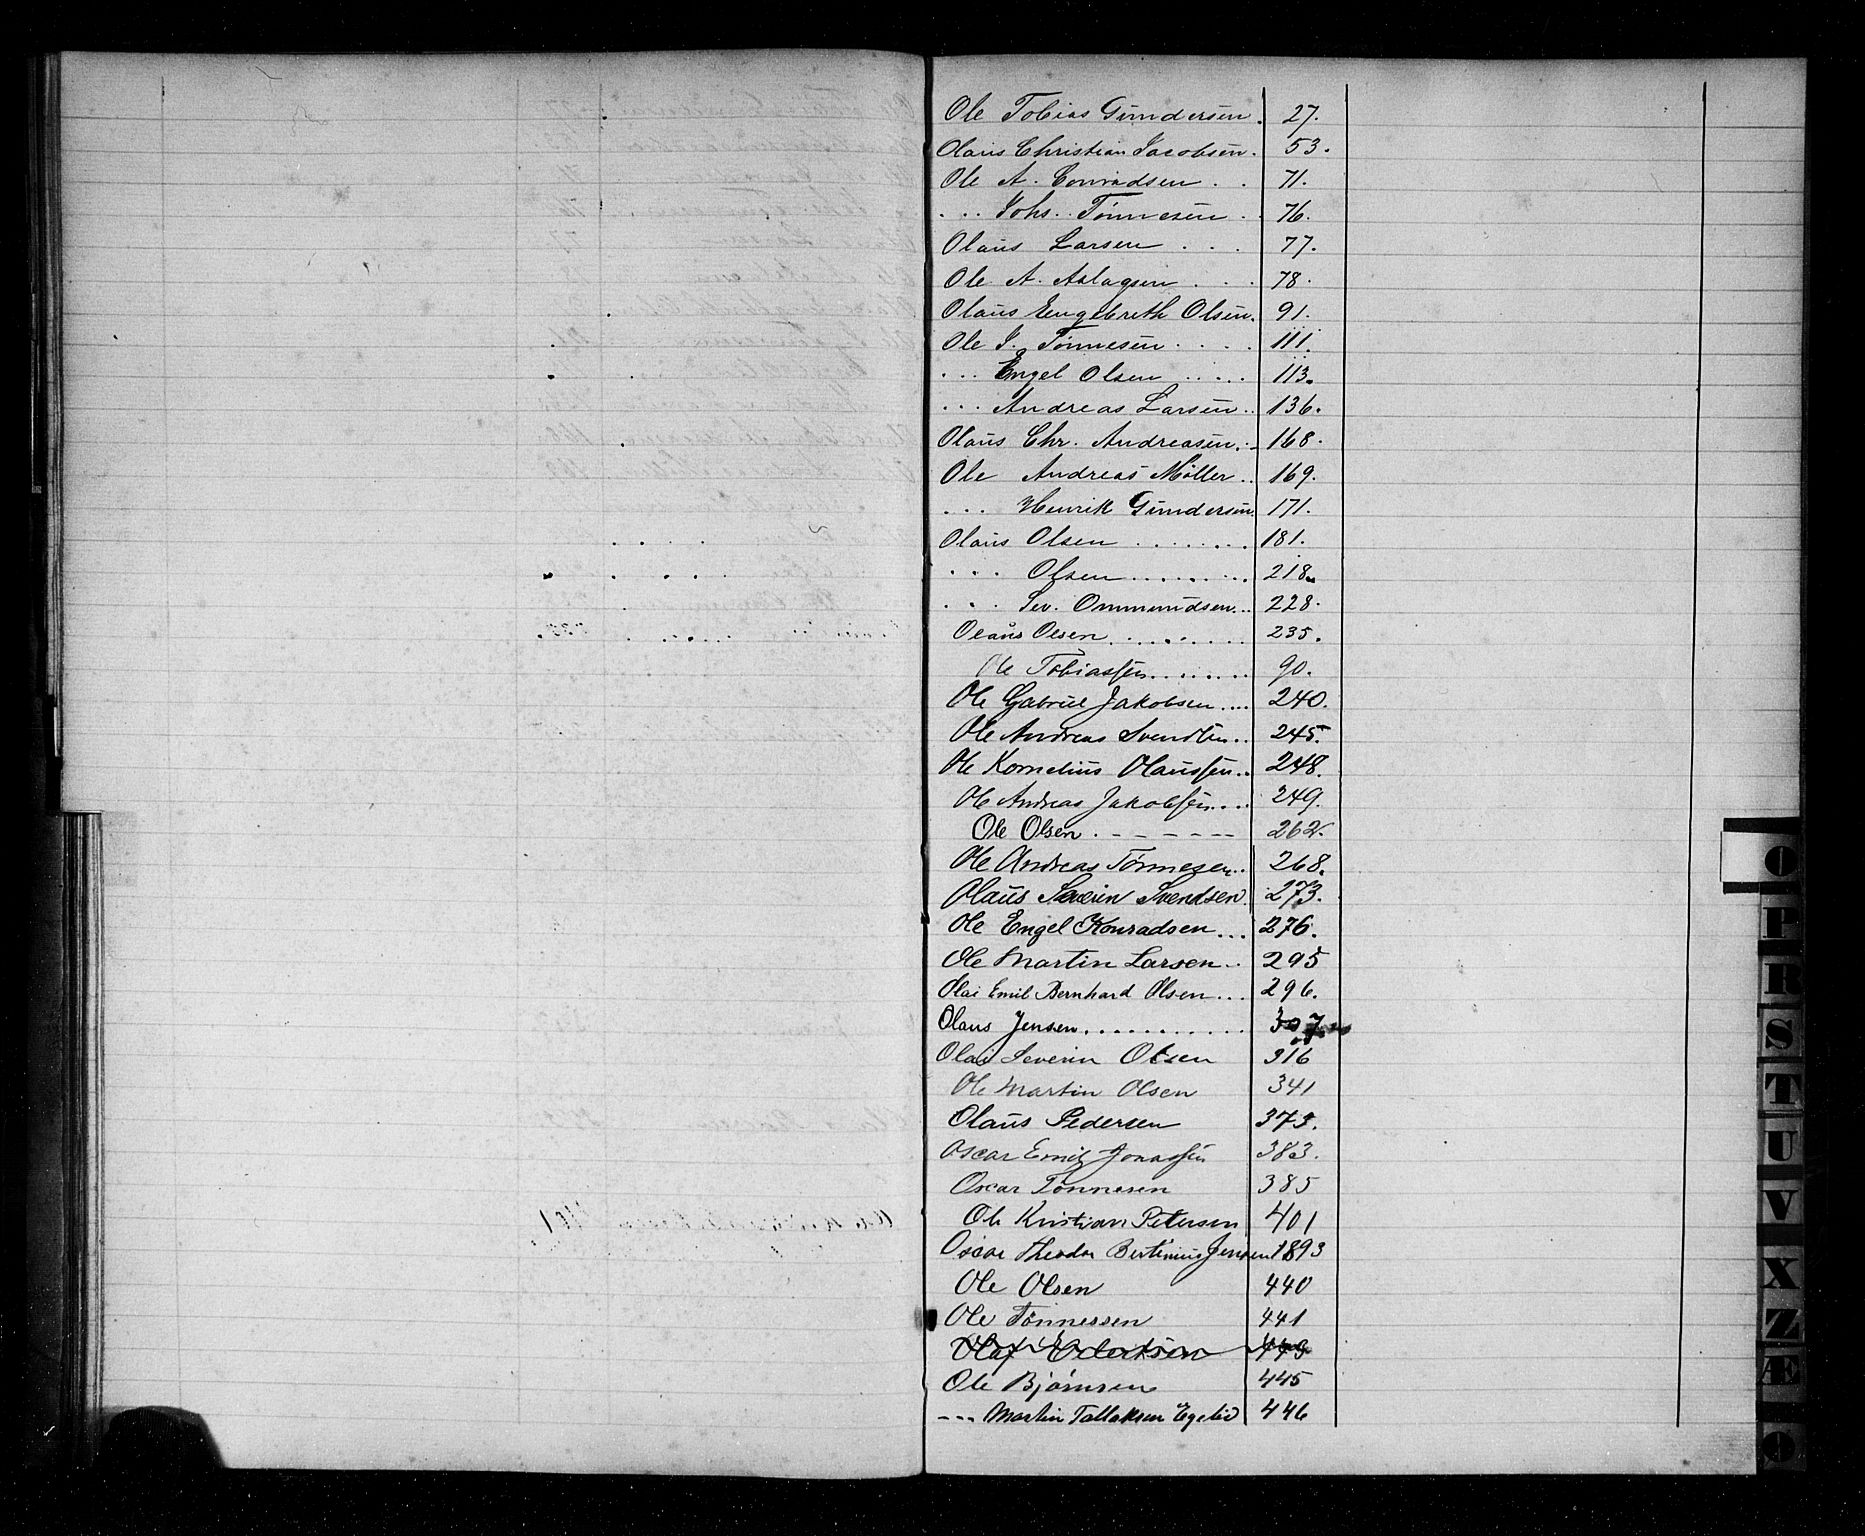 Ole Tobias Gundersen. 27.
Olaus Christian Jacobsen. 53.
Ole A. Conradsen . . 71.
. . . Johs. Tønnesen . . 76.
Olaus Larsen . . . 77.
Ole A. Aslagsen . . . 78.
Olaus Engebreth Olsen. 91.
Ole J. Tønnesen . . . . 111.
. . . Engel Olsen . . . . . 113.
. . . Andreas Larsen . . 136.
Olaus Chr. Andreasen . . 168.
Ole Andreas Møller . . 169.
. . . Henrik Gundersen. 171.
Olaus Olsen . . . . . . . . 181.
. . . Olsen . . . . . . . . 218.
. . . Sev. Ommundsen . . . 228.
Olaus Olsen . . . . . . . . 235.
Ole Tobiassen . . . . . . . 90.
Ole Gabriel Jakobsen . . . . 240.
Ole Andreas Svendsen . . 245.
Ole Kornelius Olaussen . . 248.
Ole Andreas Jakobsen . . . . 249.
Ole Olsen . - - - - - - 262.
Ole Andreas Tønnesen . . 268.
Olaus Severin Svendsen. 273.
Ole Engel Konradsen . . . 276.
Ole Martin Larsen . . 295
Olai Emil Bernhard Olsen . . . 296.
Olaus Jensen . . . . . . . . . . . . 307.
Olai Severin Olsen 316
Ole Martin Olsen 341
Olaus Pedersen 373.
Oscar Emil Jonassen 383.
Oscar Tønnesen 385
Ole Kristian Petersen 401
Oscar Theodor Bertinius Jensen 1893
Ole Olsen 440
Ole Tønnessen 441
Olaf 443
Ole Bjørnsen 445
- - - Martin Tallaksen Egelid 446
O
P
R
S
T
U
V
X
Z
Æ
Ø